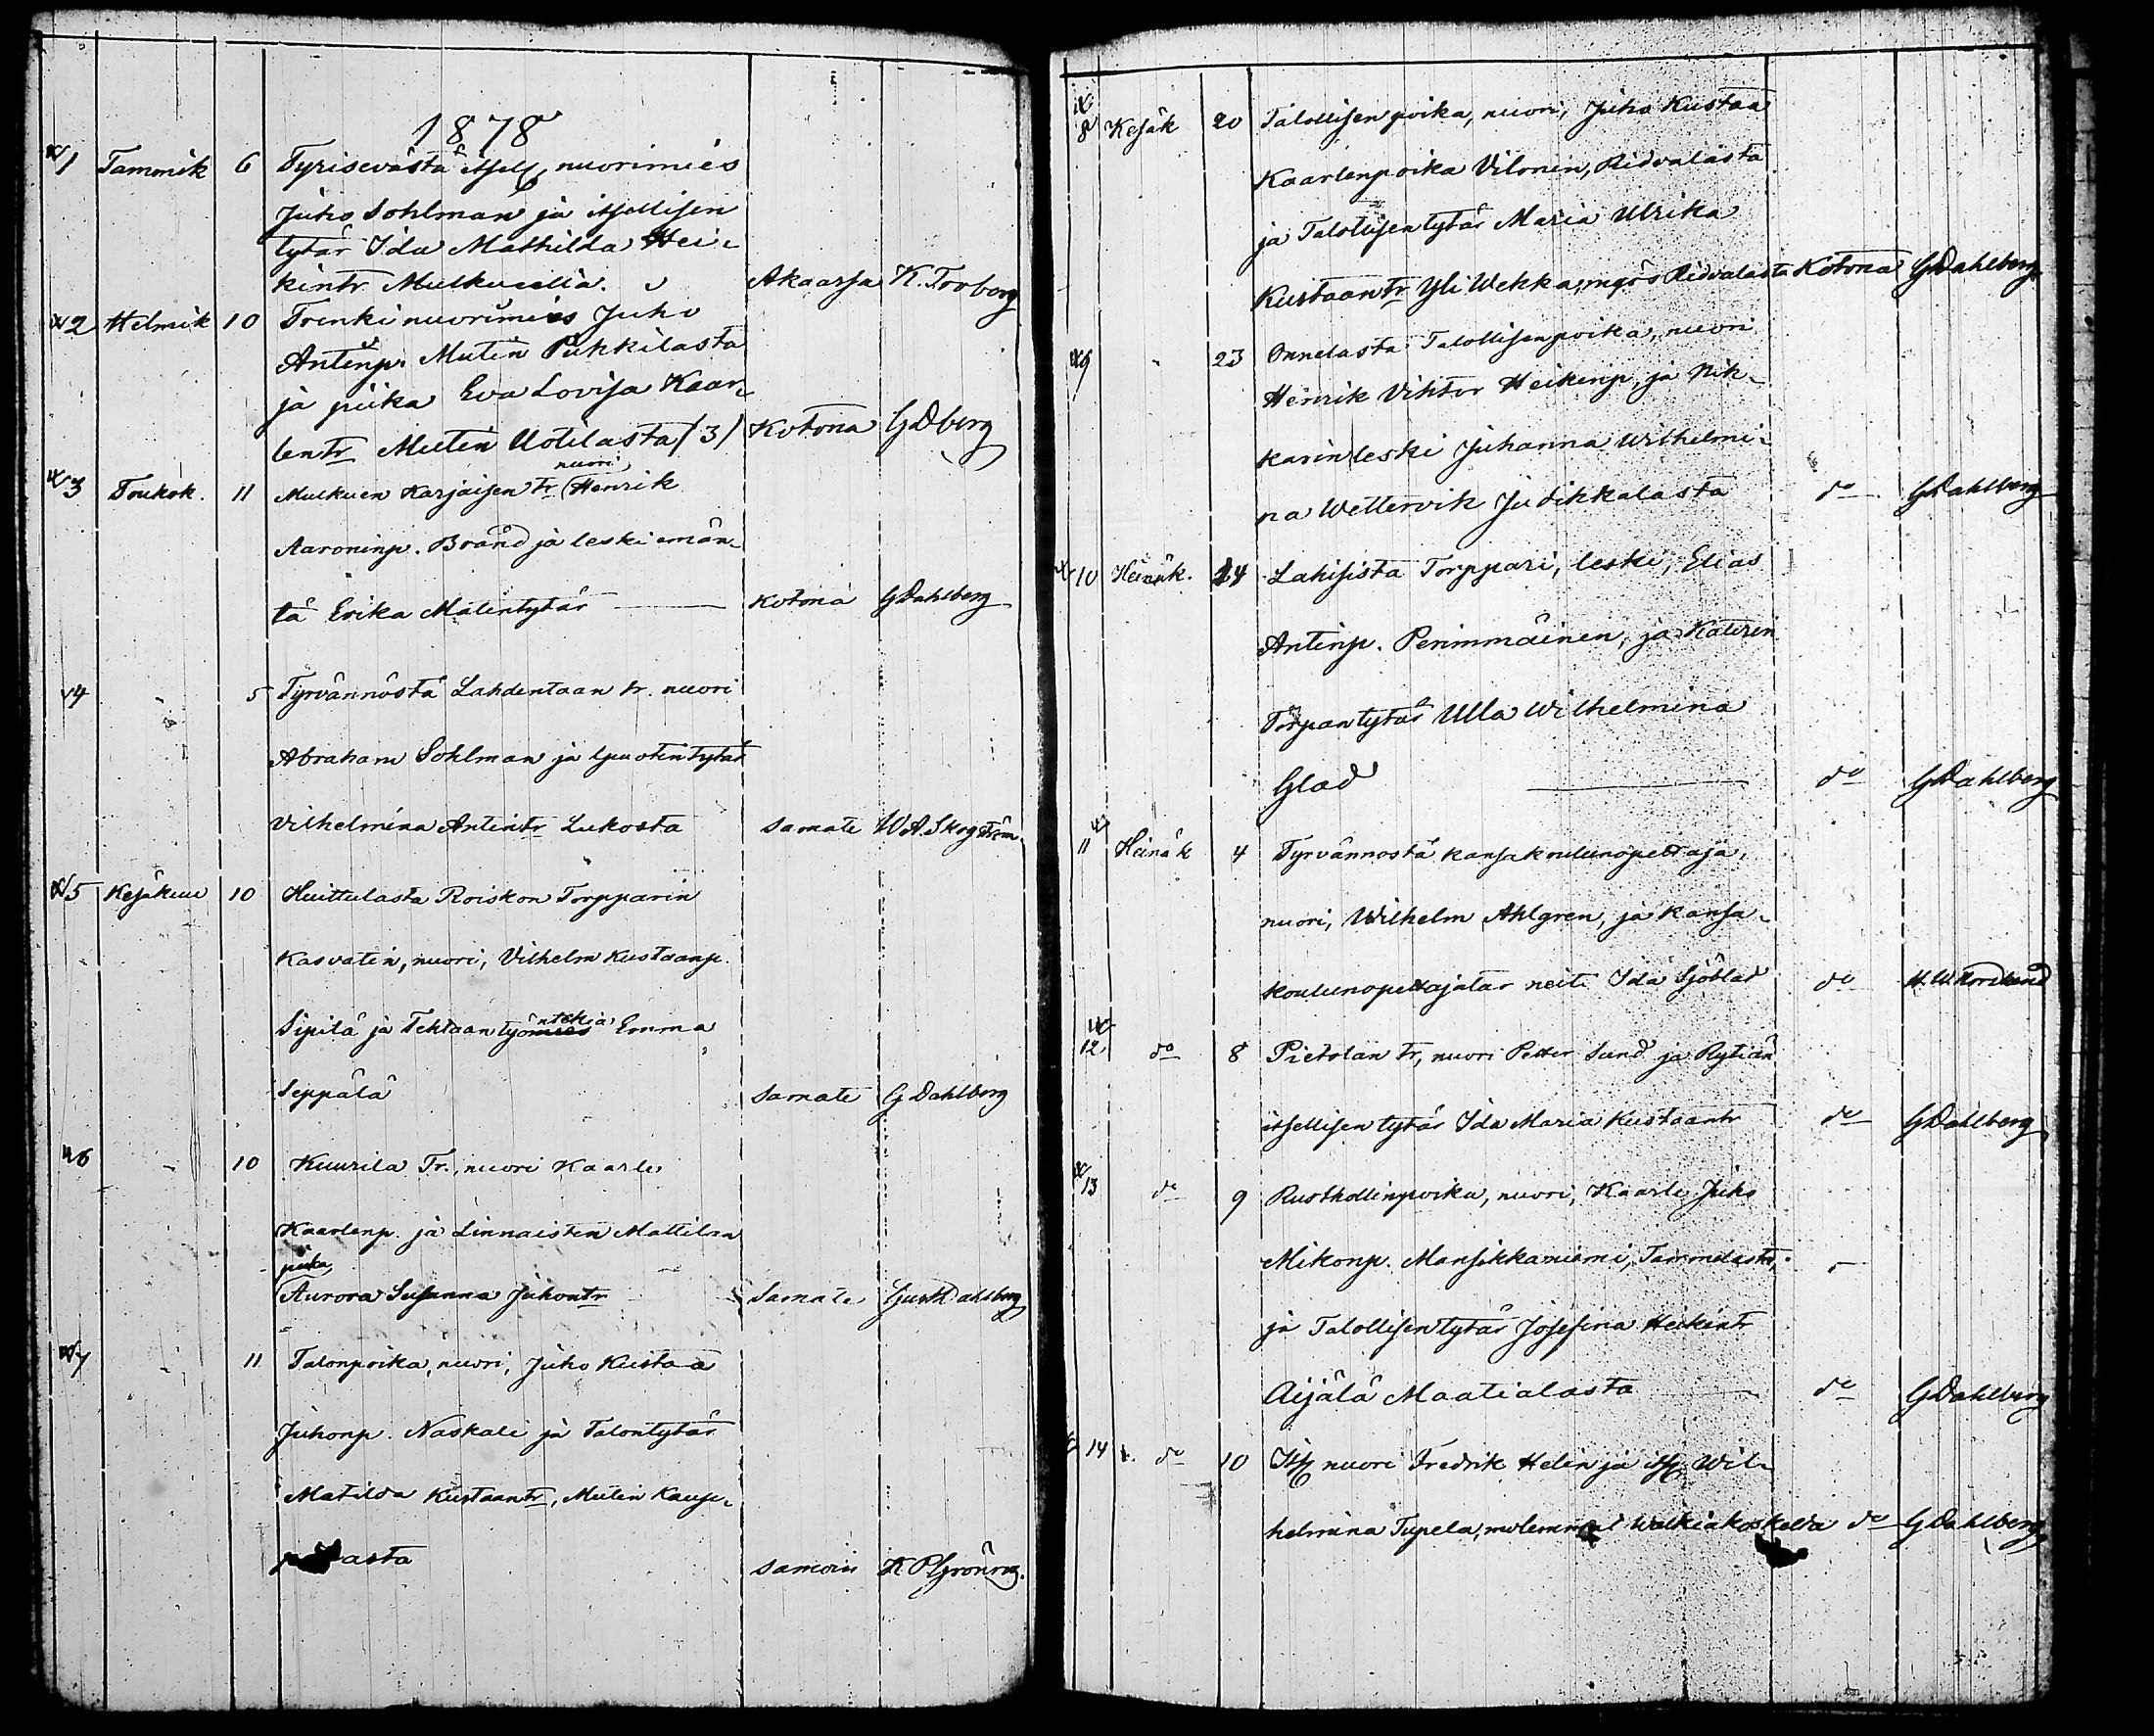 1878
1 Tammik 6 Tyrisevästä itsell. nuorimies
Juho Sohlman ja itsellisen
tytär Ida Mathilda Hei-
kintr Mulkusilla. Akaassa K. Forborg
2 Helmik 10 Trenki nuorimies Juho
Antinp. Mutin Pukkilasta
ja piika Eva Lovisa Kaar-
lentr Mutin Uotilasta (3) Kotona GDberg
3 Toukok. 11 Mulkuen Karjaisen tr nuori Henrik
Aaroninp. Brand ja leski emän-
tä Erika Matintytär Kotona GDahlberg
4 " 5 Tyrvännöstä Lahdentaan tr. nuori
Abraham Sohlman ja tytär
Vilhelmina Antintr Lukosta samate W.A. Skogström
5 Kesäkuu 10 Huittulasta Roiskon Torpparin
Kasvatin, nuori, Vilhelm Kustaanp.
Sipilä ja Tehtaan työntekiä Emma
Seppälä samate G Dahlberg
6 " 10 Kuurila Tr., nuori Kaarle
Kaarlenp. ja Linnaisten Mattilan
piika
Aurora Susanna Juhontr Samate Gust Dahlberg
7 11 Talonpoika, nuori, Juho Kustaa
Juhonp. Naskali ja Talontytär
Matilda Kustaantr, Mutin
asta samoin K P Grönroos
8 Kesäk 20 Talollisen poika, nuori, Juho Kustaa
Kaarlenpoika Vilonen, Ridvalasta
ja Talollisentytär Maria Ulrika
Kustaantr Yli Wekka, myös Ridvalasta Kotona GDahlberg
9 " 23 Onnelasta Talollisenpoika, nuori
Henrik Vihtor Heikinp. ja Nik-
karin leski Juhanna Wilhelmi-
na Wettervik Judikkalasta do GDahlberg
10 Heinäk. 24 Lahisista Torppari, leski, Elias
Antinp. Perimmäinen, ja Katisen
Torpantytär Ulla Wilhelmina
Glad do GDahlberg
11 Heinäk 4 Tyrvännöstä kansakoulunopettaja,
nuori, Wilhelm Ahlgren, ja kansa-
koulunopettajatar neiti Ida Sjöblad do H.W. Nordlund
12 do 8 Pietolan tr, nuori Petter Sund ja Rytiän
itsellisen tytär Ida Maria Kustaantr do GDahlberg
13 do 9 Rusthollinpoika, nuori, Kaarle Juho
Mikonp. Mansikkaniemi, Tammelasta,
ja Talollisentytär Josefina Heikintr
Äijälä Maatialasta do GDahlberg
14 do 10 Its. nuori Fredrik Helin ja its. Wil-
helmina Tupela, molemmat Walkiakoskelta do GDahlberg